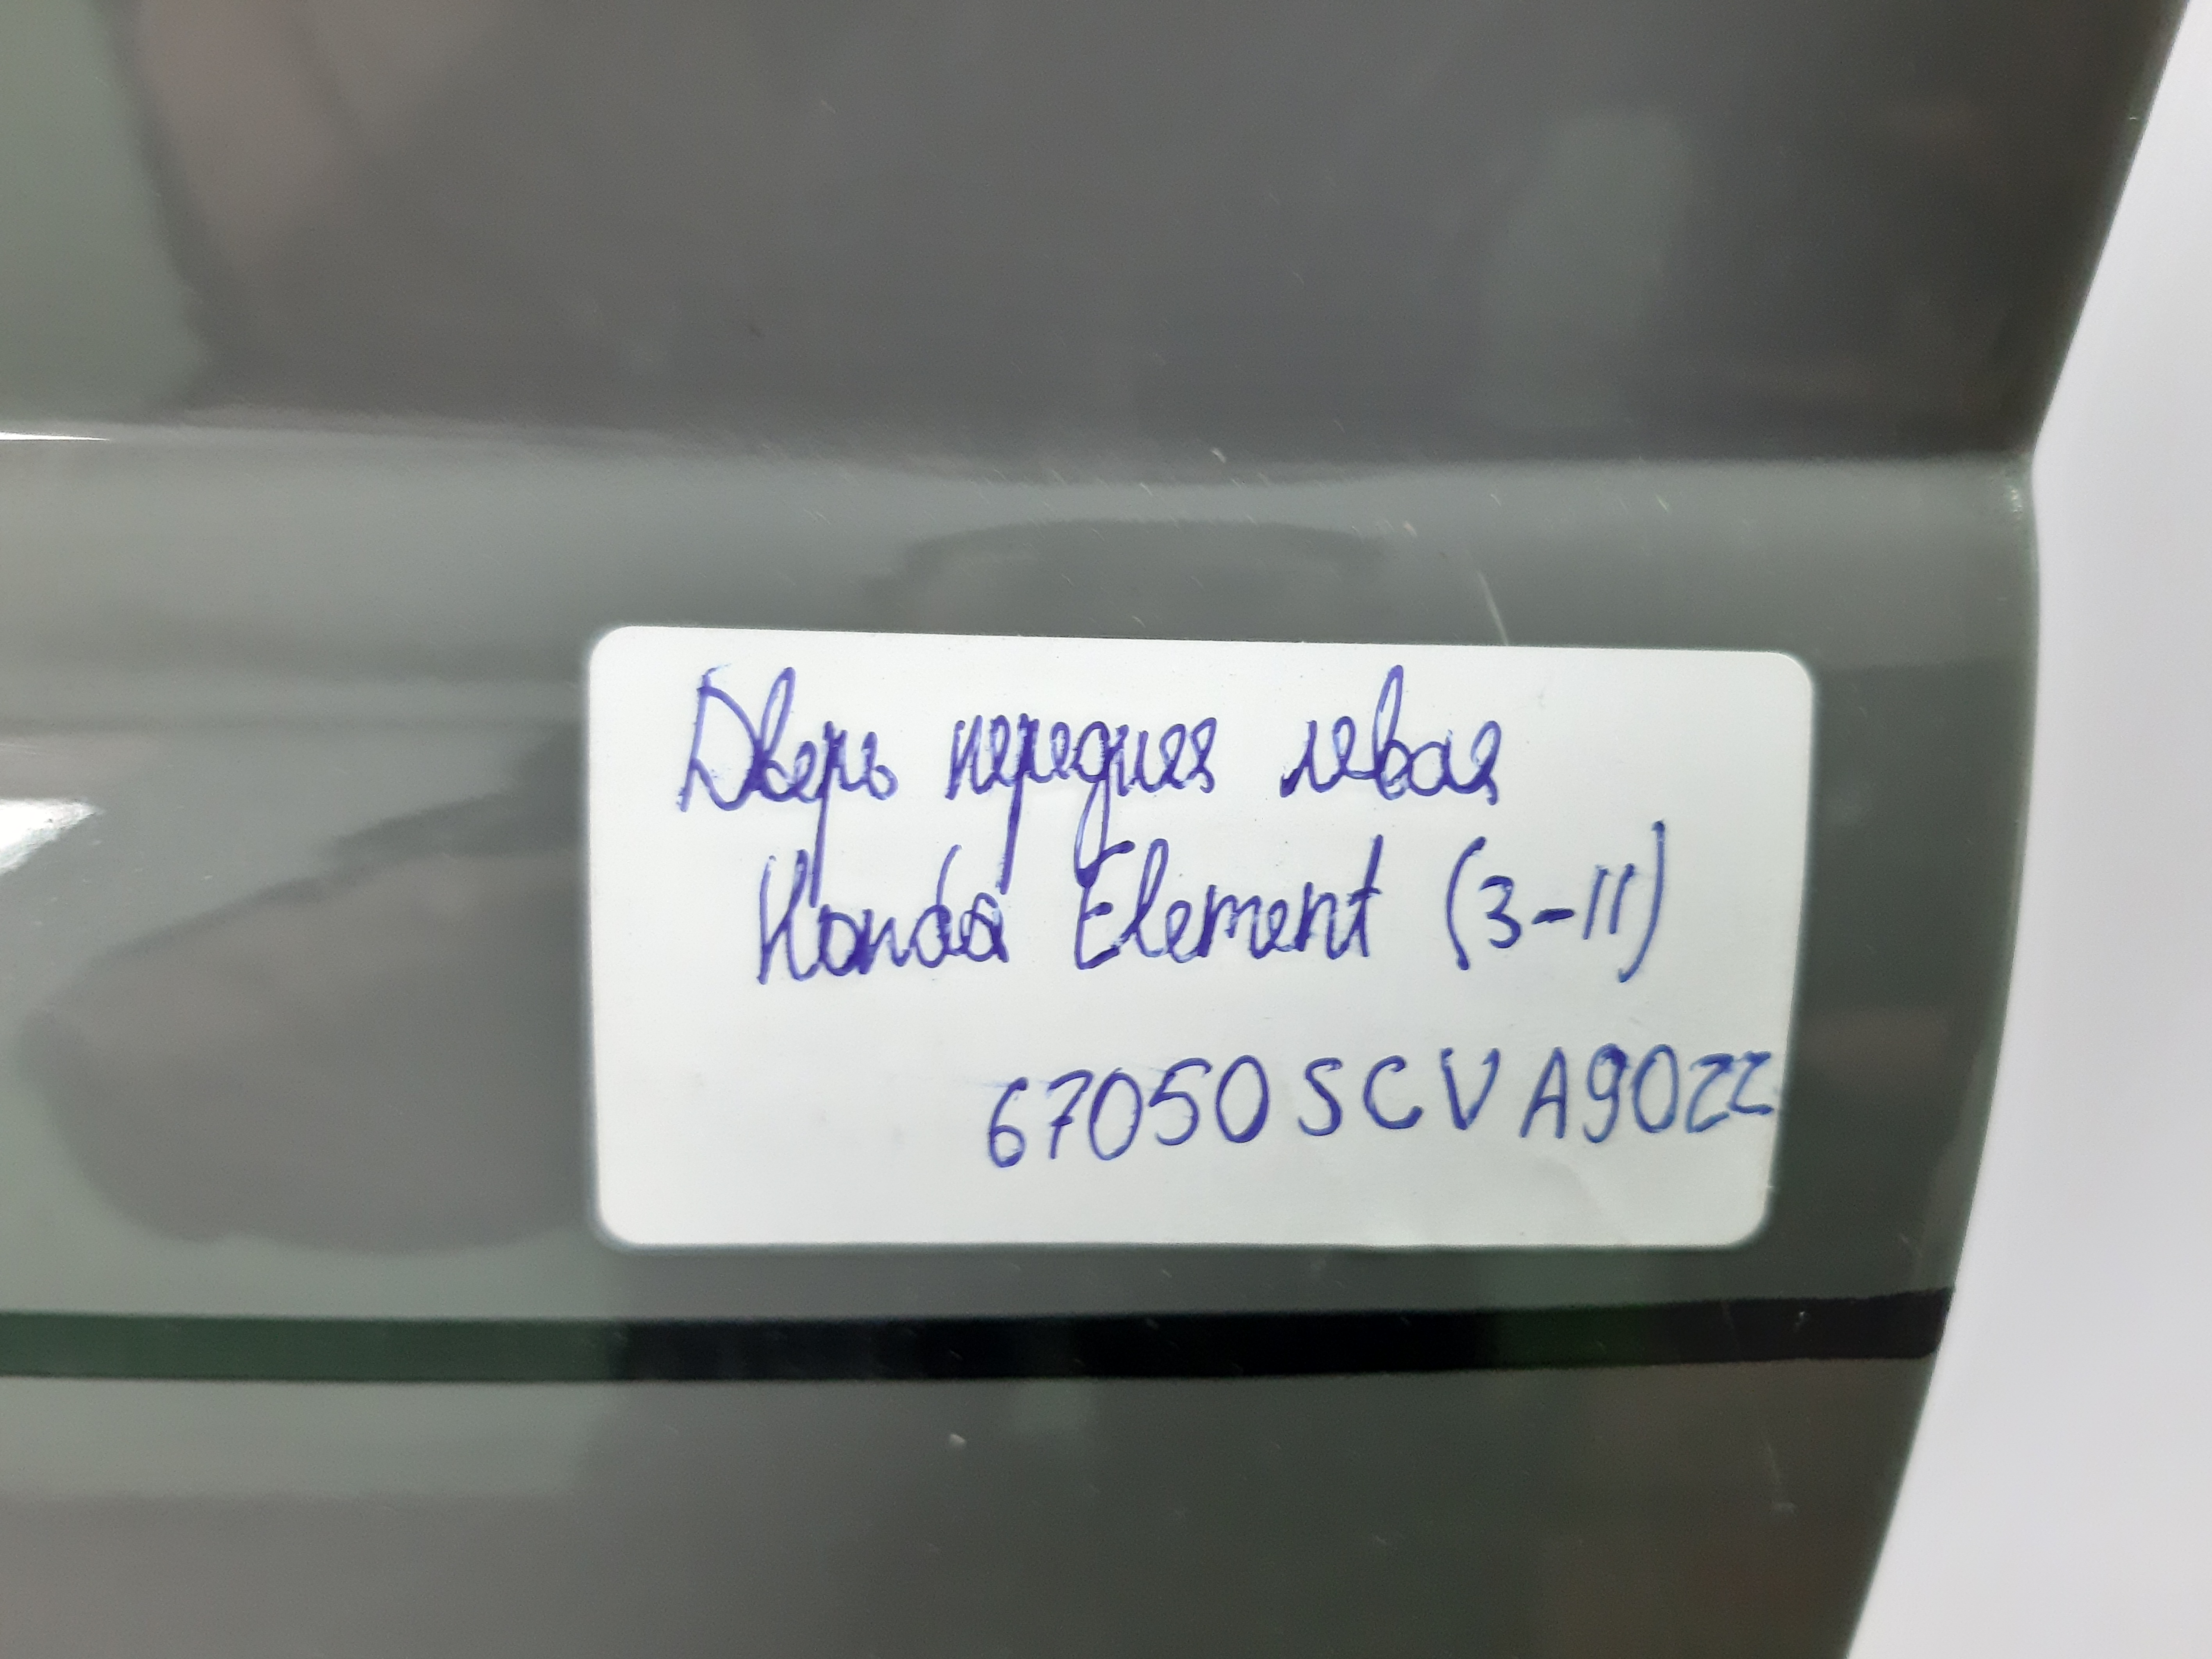 Дверь передняя левая
Honda Element (3-11)
67050SCVA90ZZ